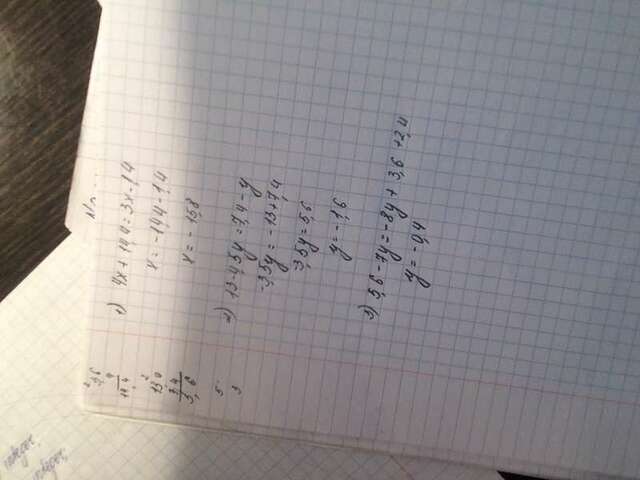 2
3,6
4
14,4
2
13,0
3,4
5,6
5
3
1) 4x + 14,4 = 3x - 1,4
x = -14,4 - 1,4
x = - 15,8
2) 13 - 4,5y = 7,4 - y
-3,5y = -13 + 7,4
-3,5y = 5,6
y = -1,6
3) 5,6 - 7y = -8y + 3,6 + 2,4
y = -0,4